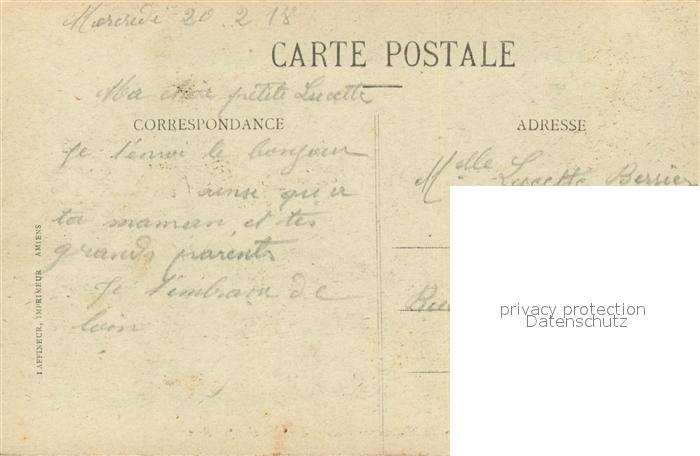 Mercredi 20 2 18
CARTE POSTALE
Ma chère petite Lucette
CORRESPONDANCE
ADRESSE
Je t'envoi le bonjour
ainsi qu'a
ta maman et tes
grands parents
Je t'embrasse de
loin
Mdlle Lucette Berrier
Rue
privacy protection
Datenschutz
LAFFINEUR, IMPRIMEUR AMIENS